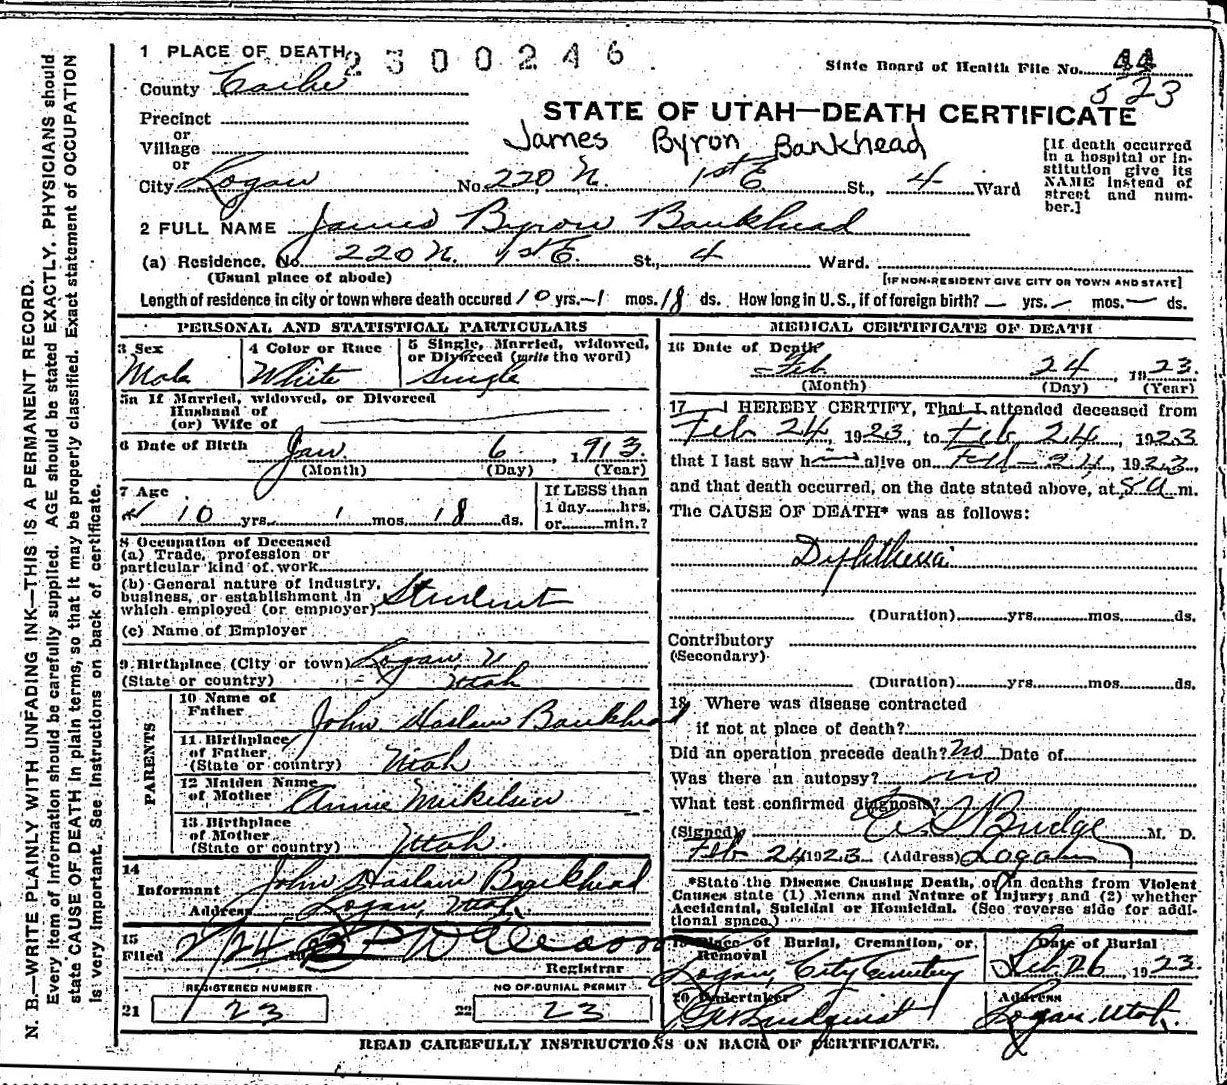 1 PLACE OF DEATH 2300246
State Board of Health File No. 44
County Cache 523
STATE OF UTAH—DEATH CERTIFICATE
Precinct
or
Village
or
James Byron Bankhead
[If death occurred in a hospital or institution give its NAME instead of street and number.]
City Logan No. 220 N. 1st E St., 4 Ward
2 FULL NAME James Byron Bankhead
(a) Residence. No. 220 N. 1st E. St., 4 Ward.
(Usual place of abode) [IF NON-RESIDENT GIVE CITY OR TOWN AND STATE]
Length of residence in city or town where death occured 10 yrs. 1 mos. 18 ds. How long in U.S., if of foreign birth? — yrs. — mos. — ds.
PERSONAL AND STATISTICAL PARTICULARS
3 Sex
Male
4 Color or Race
White
5 Single, Married, widowed,
or Divorced (write the word)
Single
5a If Married, widowed, or Divorced
Husband of
(or) Wife of
6 Date of Birth Jan 6, 1913
(Month) (Day) (Year)
7 Age
10 yrs. 1 mos. 18 ds.
If LESS than
1 day hrs.
or min.?
8 Occupation of Deceased
(a) Trade, profession or
particular kind of work
(b) General nature of industry,
business, or establishment in
which employed (or employer) Student
(c) Name of Employer
9 Birthplace (City or town) Logan, U
(State or country) Utah
PARENTS
10 Name of
Father John Haslam Bankhead
11 Birthplace
of Father
(State or country) Utah
12 Maiden Name
of Mother Annie Mickelsen
13 Birthplace
of Mother
(State or country) Utah.
14
Informant John Haslam Bankhead
Address Logan, Utah
15
Filed 2/24 1923
Registrar
REGISTERED NUMBER
21 23
NO OF BURIAL PERMIT
22 23
MEDICAL CERTIFICATE OF DEATH
16 Date of Death
Feb 24, 1923.
(Month) (Day) (Year)
17 I HEREBY CERTIFY, That I attended deceased from
Feb 24, 1923, to Feb. 24, 1923
that I last saw him alive on Feb — 24, 1923,
and that death occurred, on the date stated above, at 8 a m.
The CAUSE OF DEATH* was as follows:
Diphtheria
(Duration) yrs. mos. ds.
Contributory
(Secondary)
(Duration) yrs. mos. ds.
18 Where was disease contracted
if not at place of death?
Did an operation precede death? No Date of
Was there an autopsy? no
What test confirmed diagnosis?
(Signed) Budge M. D.
Feb 24 1923 (Address) Logan
*State the Disease Causing Death, or in deaths from Violent
Causes state (1) Means and Nature of Injury; and (2) whether
Accidental, Suicidal or Homicidal. (See reverse side for additional space.)
19 Place of Burial, Cremation, or
Removal
Logan, City Cemetery
Date of Burial
Feb. 26 1923.
20 Undertaker
Address
Logan, Utah.
READ CAREFULLY INSTRUCTIONS ON BACK OF CERTIFICATE.
N. B.—WRITE PLAINLY WITH UNFADING INK—THIS IS A PERMANENT RECORD.
Every item of information should be carefully supplied. AGE should be stated EXACTLY. PHYSICIANS should
state CAUSE OF DEATH in plain terms, so that it may be properly classified. Exact statement of OCCUPATION
is very important. See instructions on back of certificate.